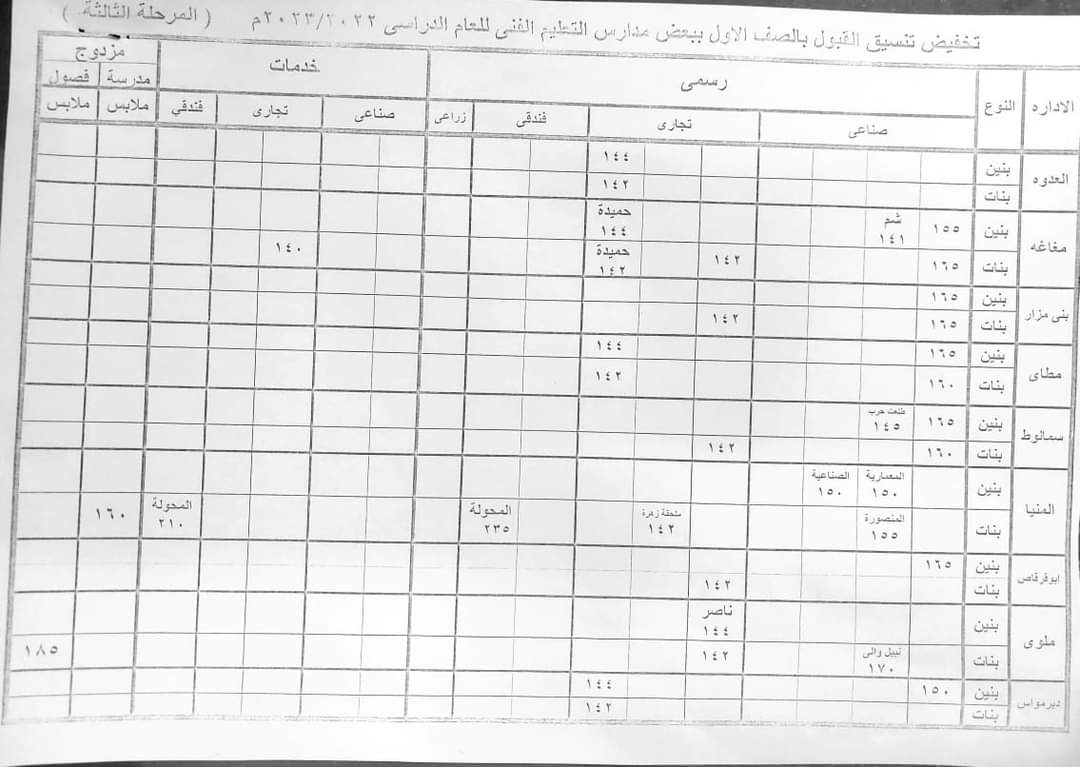 تخفيض تنسيق القبول بالصف الاول ببعض مدارس التعليم الفنى للعام الدراسى ٢٠٢٣/٢٠٢٢م ( المرحلة الثالثة )
الاداره النوع رسمى خدمات مزدوج
مدرسة فصول
صناعى تجارى فندقى زراعى صناعى تجارى فندقي ملابس ملابس
العدوه
بنين ١٤٤
بنات ١٤٢
مغاغه
بنين ١٥٥ شم ١٤١ حميدة ١٤٤
بنات ١٦٥ ١٤٢ حميدة ١٤٢ ١٤٠
بنى مزار
بنين ١٦٥
بنات ١٦٥ ١٤٢
مطاى
بنين ١٦٥ ١٤٤
بنات ١٦٠ ١٤٢
سمالوط
بنين ١٦٥ طلعت حرب ١٤٥
بنات ١٦٠ ١٤٢
المنيا
بنين المعمارية ١٥٠ الصناعية ١٥٠
بنات المنصورة ١٥٥ ملحقة زهرة ١٤٢ المحولة ٢٣٥ المحولة ٢١٠ ١٦٠
ابوقرقاص
بنين ١٦٥
بنات ١٤٢
ملوى
بنين ناصر ١٤٤
بنات نبيل والى ١٧٠ ١٤٢ ١٨٥
ديرمواس
بنين ١٥٠ ١٤٤
بنات ١٤٢